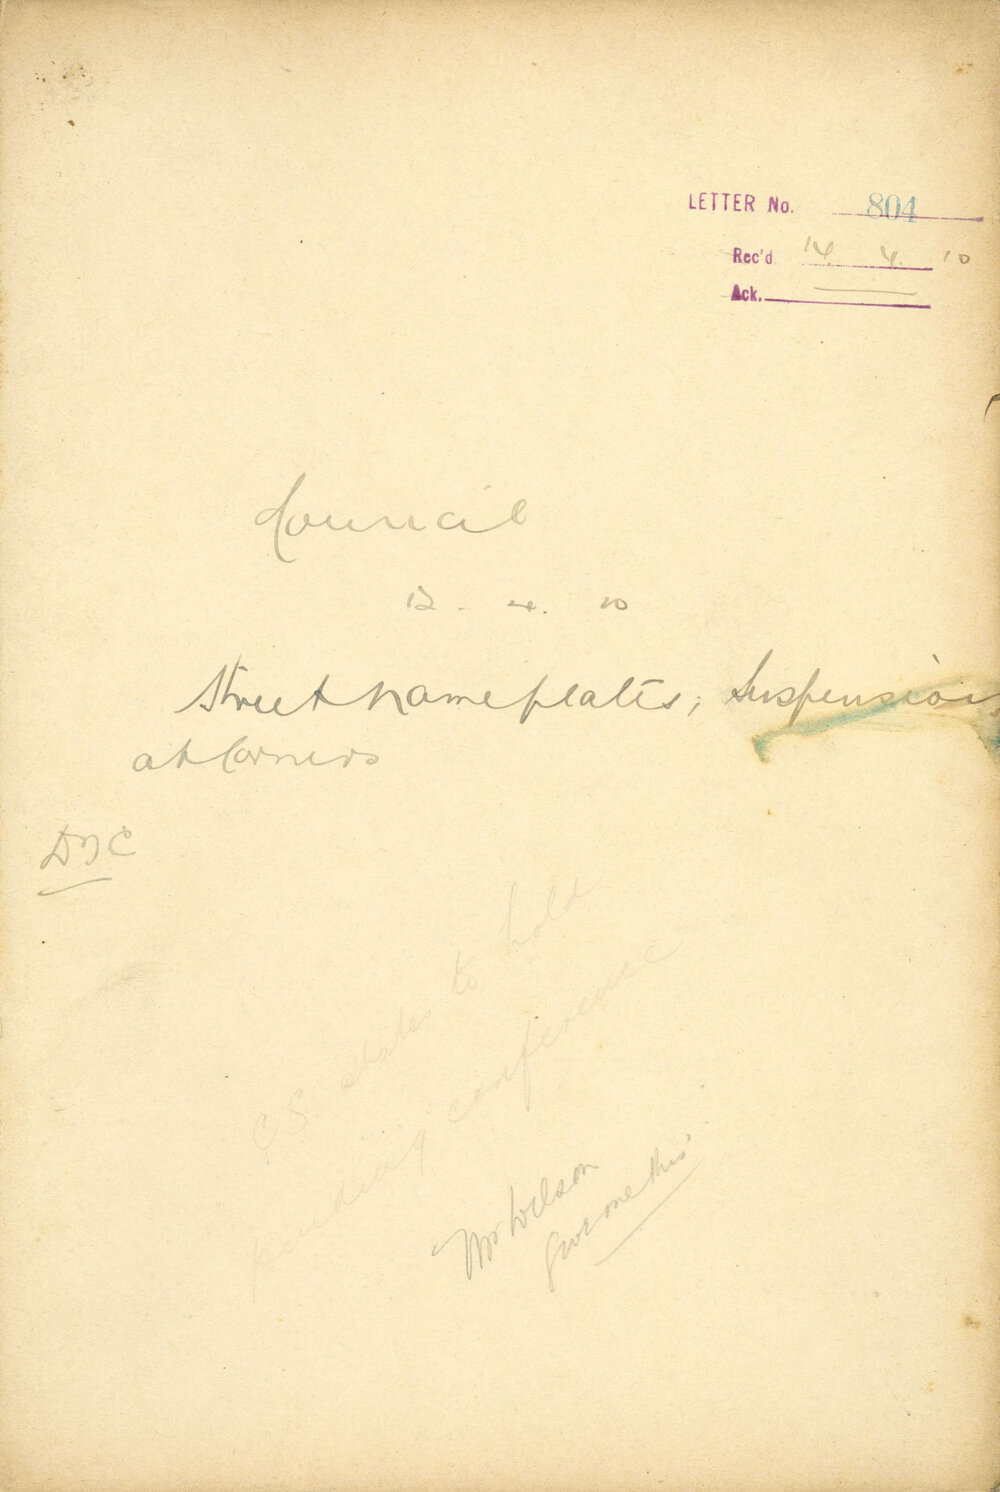 LETTER No. 804
Rec'd 14. 4. 10
Ack.
Council
12. 4. 10
Street name plates; Suspension
at Corners
C.S. states to hold
pending conference
Mr Wilson
Give me this